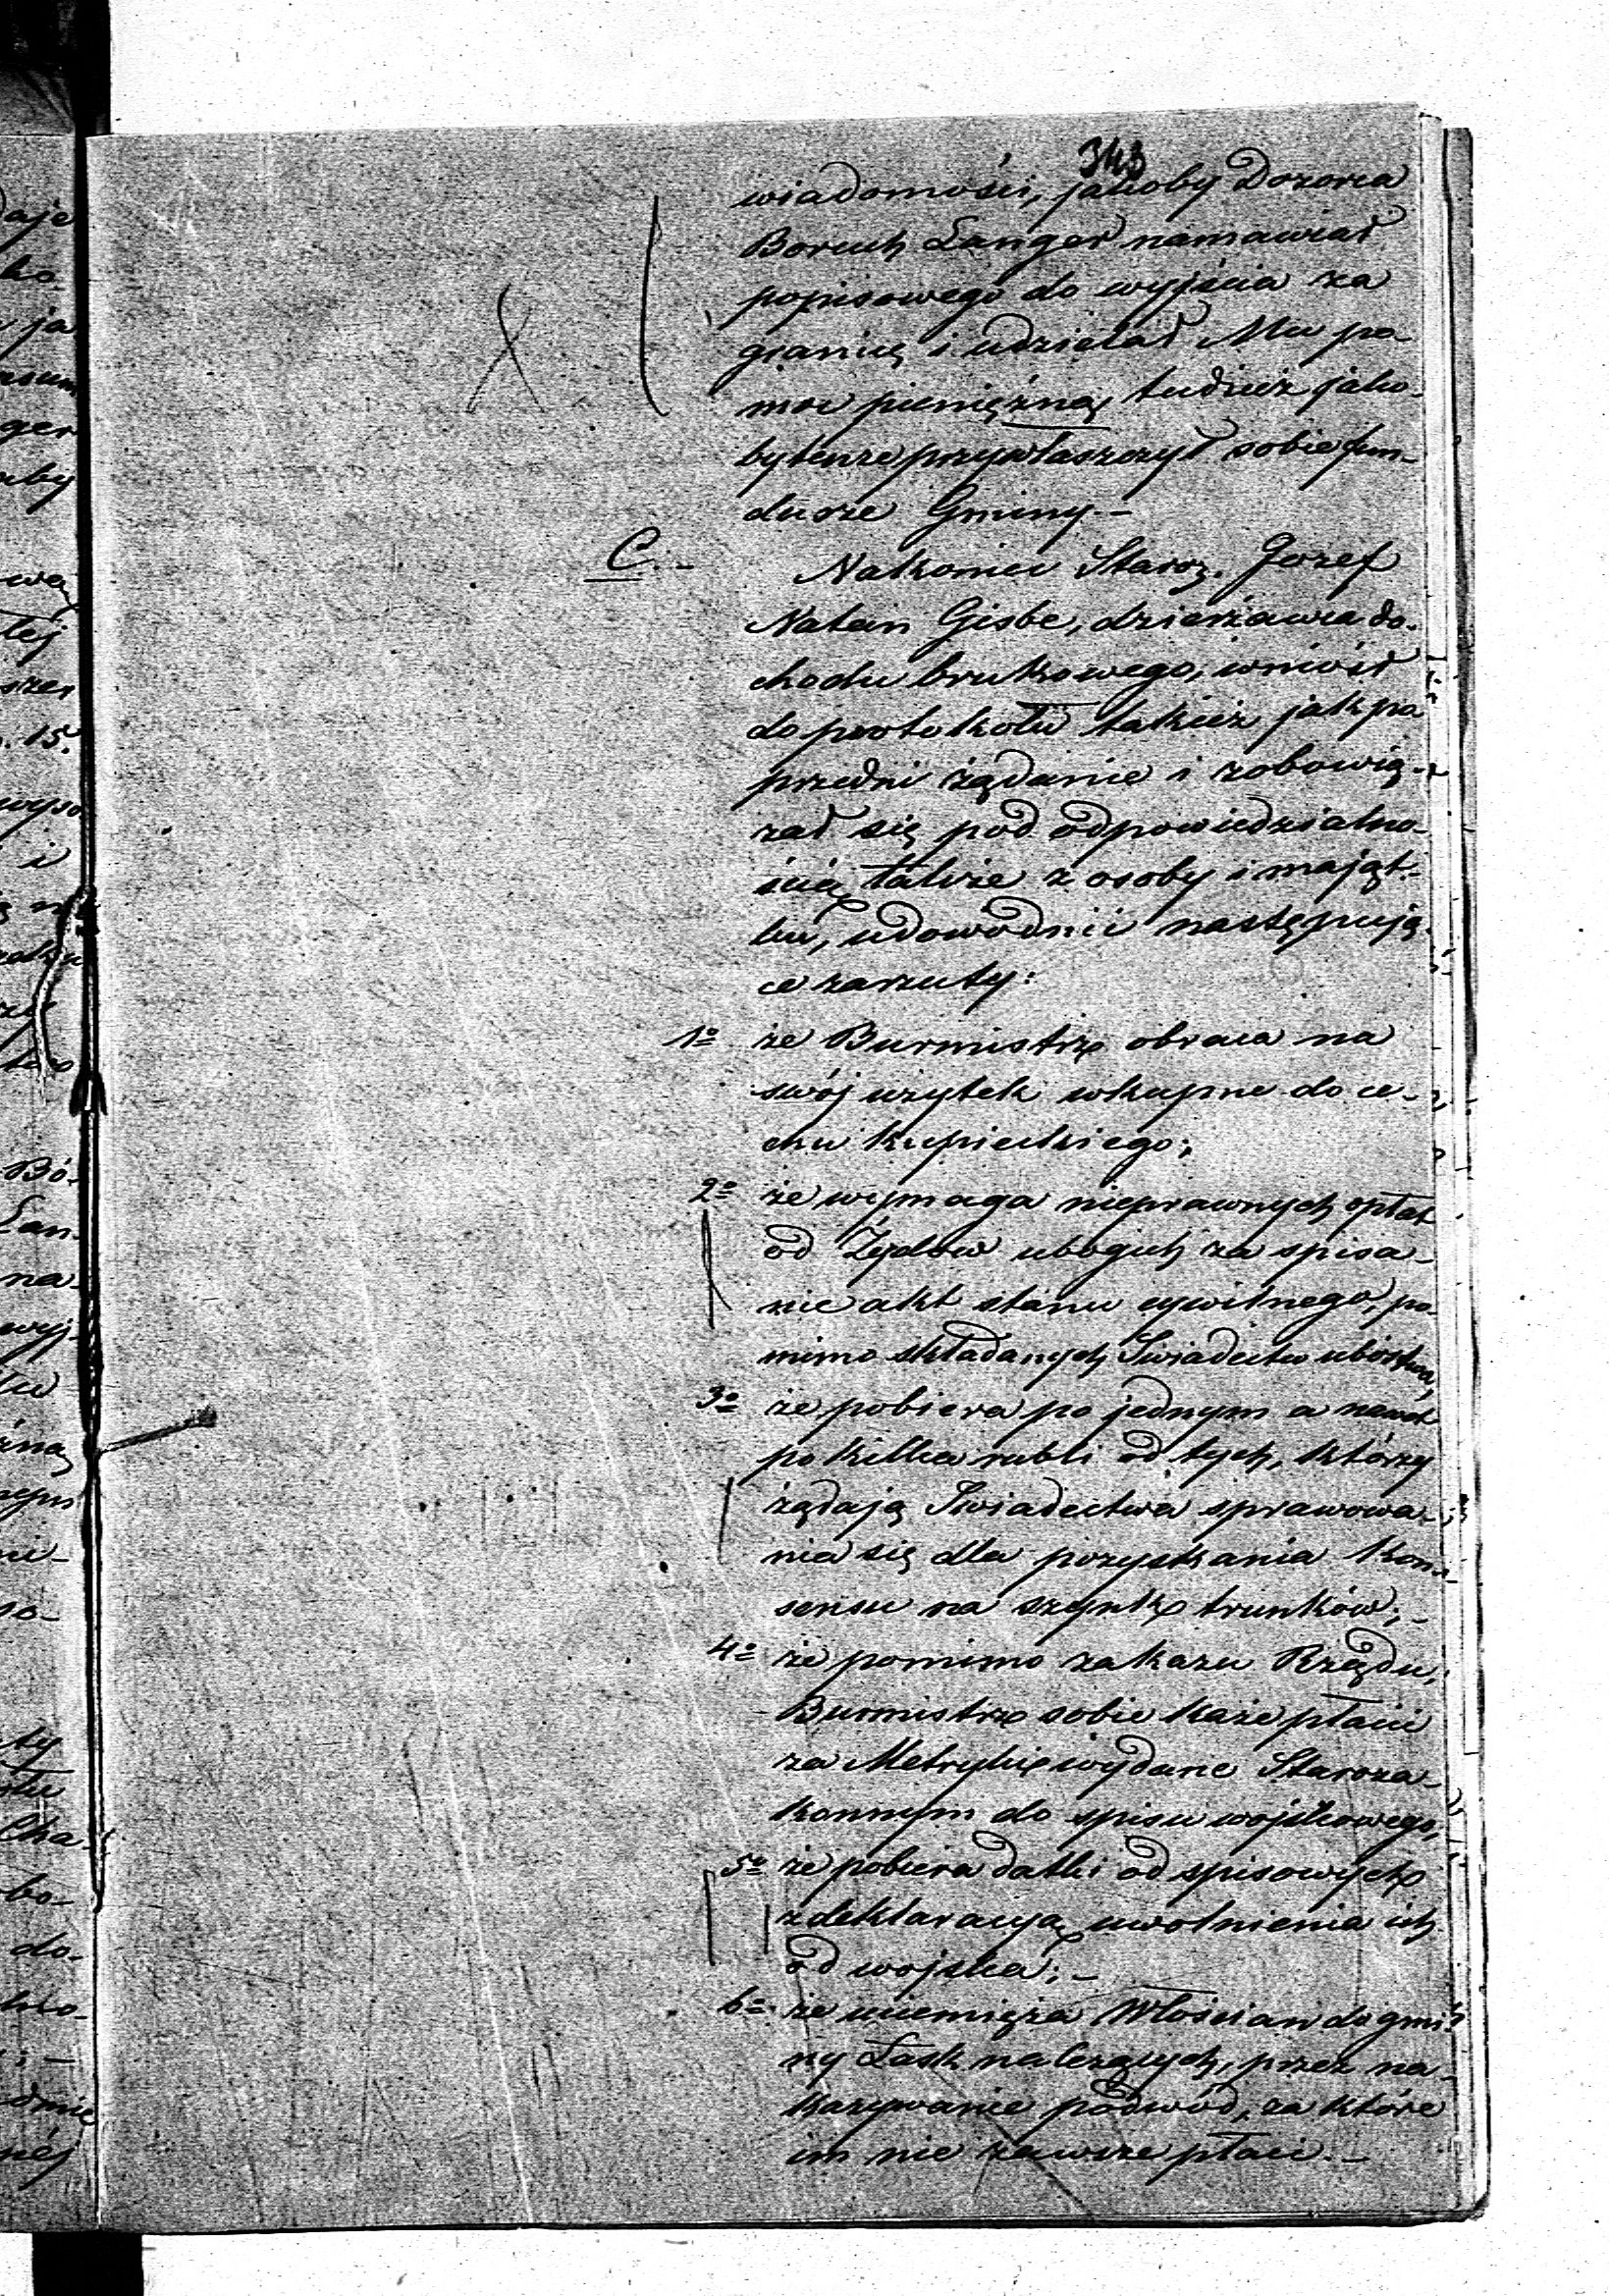 343
wiadomości, jakoby Dozorca
Boruch Langer namawiał
popisowego do wyjścia za
granicę i udzielał Mu po-
moc pieniężną, tudzież jako-
by tenże przywłaszczył sobie fun-
dusze Gminy.-
C.- Nakoniec Staroz. Jozef
Natan Gisbe, dzierżawca do-
chodu brukowego, wniósł
do protokołu takież jak po
przedni żądanie i zobowią-
zał się pod odpowiedzialno-
ścią także z osoby i mająt-
ku, udowodnić następują
ce zarzuty:
1o że Burmistrz obraca na
swój użytek wkupne do ce-
chu kupieckiego;
2o że wymaga nieprawnych opłat
od Żydów ubogich za spisa-
nie akt stanu cywilnego, po-
mimo składanych Świadectw ubóstwa,
3o że pobiera po jednym a nawet
po kilka rubli od tych, którzy
żądają Świadectwa sprawowa-
nia się dla pozyskania kon-
sensu na szynk trunków;-
4o że pomimo zakazu Rządu,
Burmistrz sobie każe płacić
za Metryki wydane Staroza-
konnym do spisu wojskowego,
5o że pobiera datki od spisowych
z deklaracyą uwolnienia ich
od wojska;-
6o że uciemięża Włościan do gmi-
ny Łask należących, przez na-
kazywanie podwód, za które
im nie zawsze płaci.-
daje
ko-
ja
ger
aby
wą
tej
15.
wyso
i
Bó-
Lan-
na-
wyj-
żną
ty
Cha
bo-
do-
dnie
nej